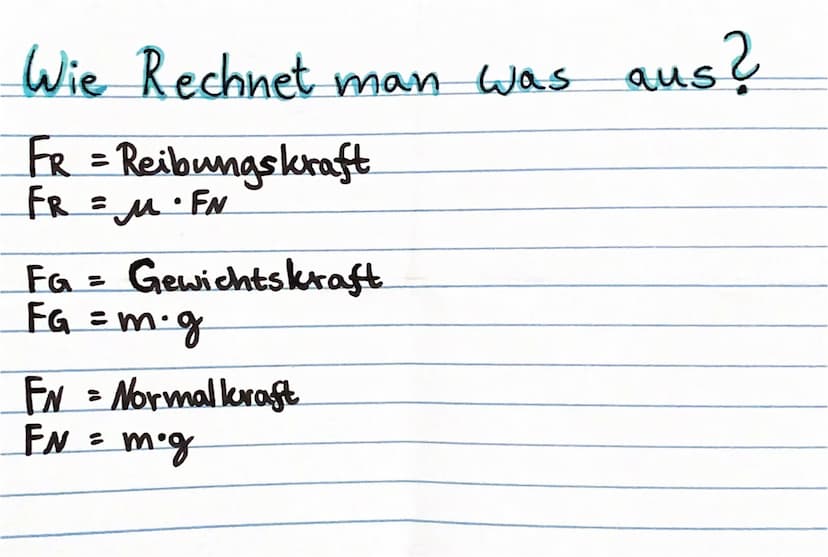 Wie Rechnet man was aus?
FR = Reibungskraft
FR = μ · FN
FG = Gewichtskraft
FG = m · g
FN = Normalkraft
FN = m · g